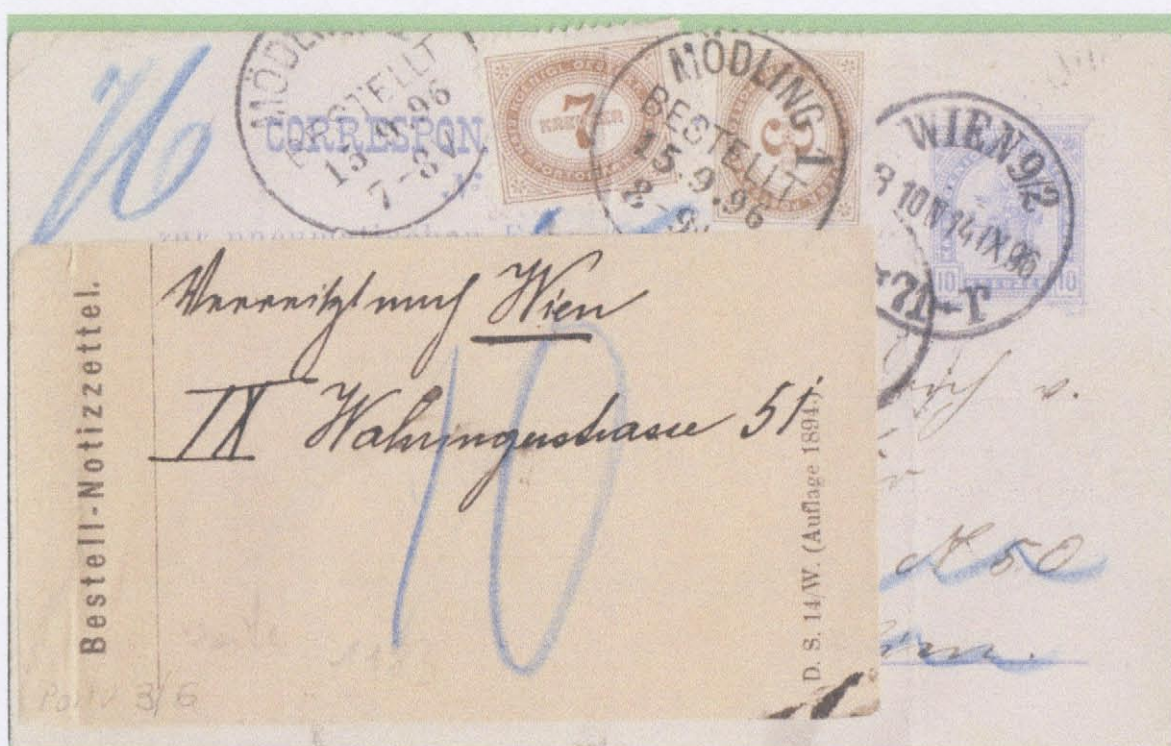 MÖDLING
BESTELLT
15.9.96
7-8V
CORRESPON
7
KREUZER
MÖDLING 1
BESTELLT
15.9.96
8-9V
3
WIEN 9/2
8 10N 14 IX 96
10 10
zur pneumatischen
Bestell-Notizzettel.
Verreist nach Wien
IX Wahringerstrasse 51
10
D. S. 14/W. (Auflage 1894.)
v.
N 50
Porto 3/6